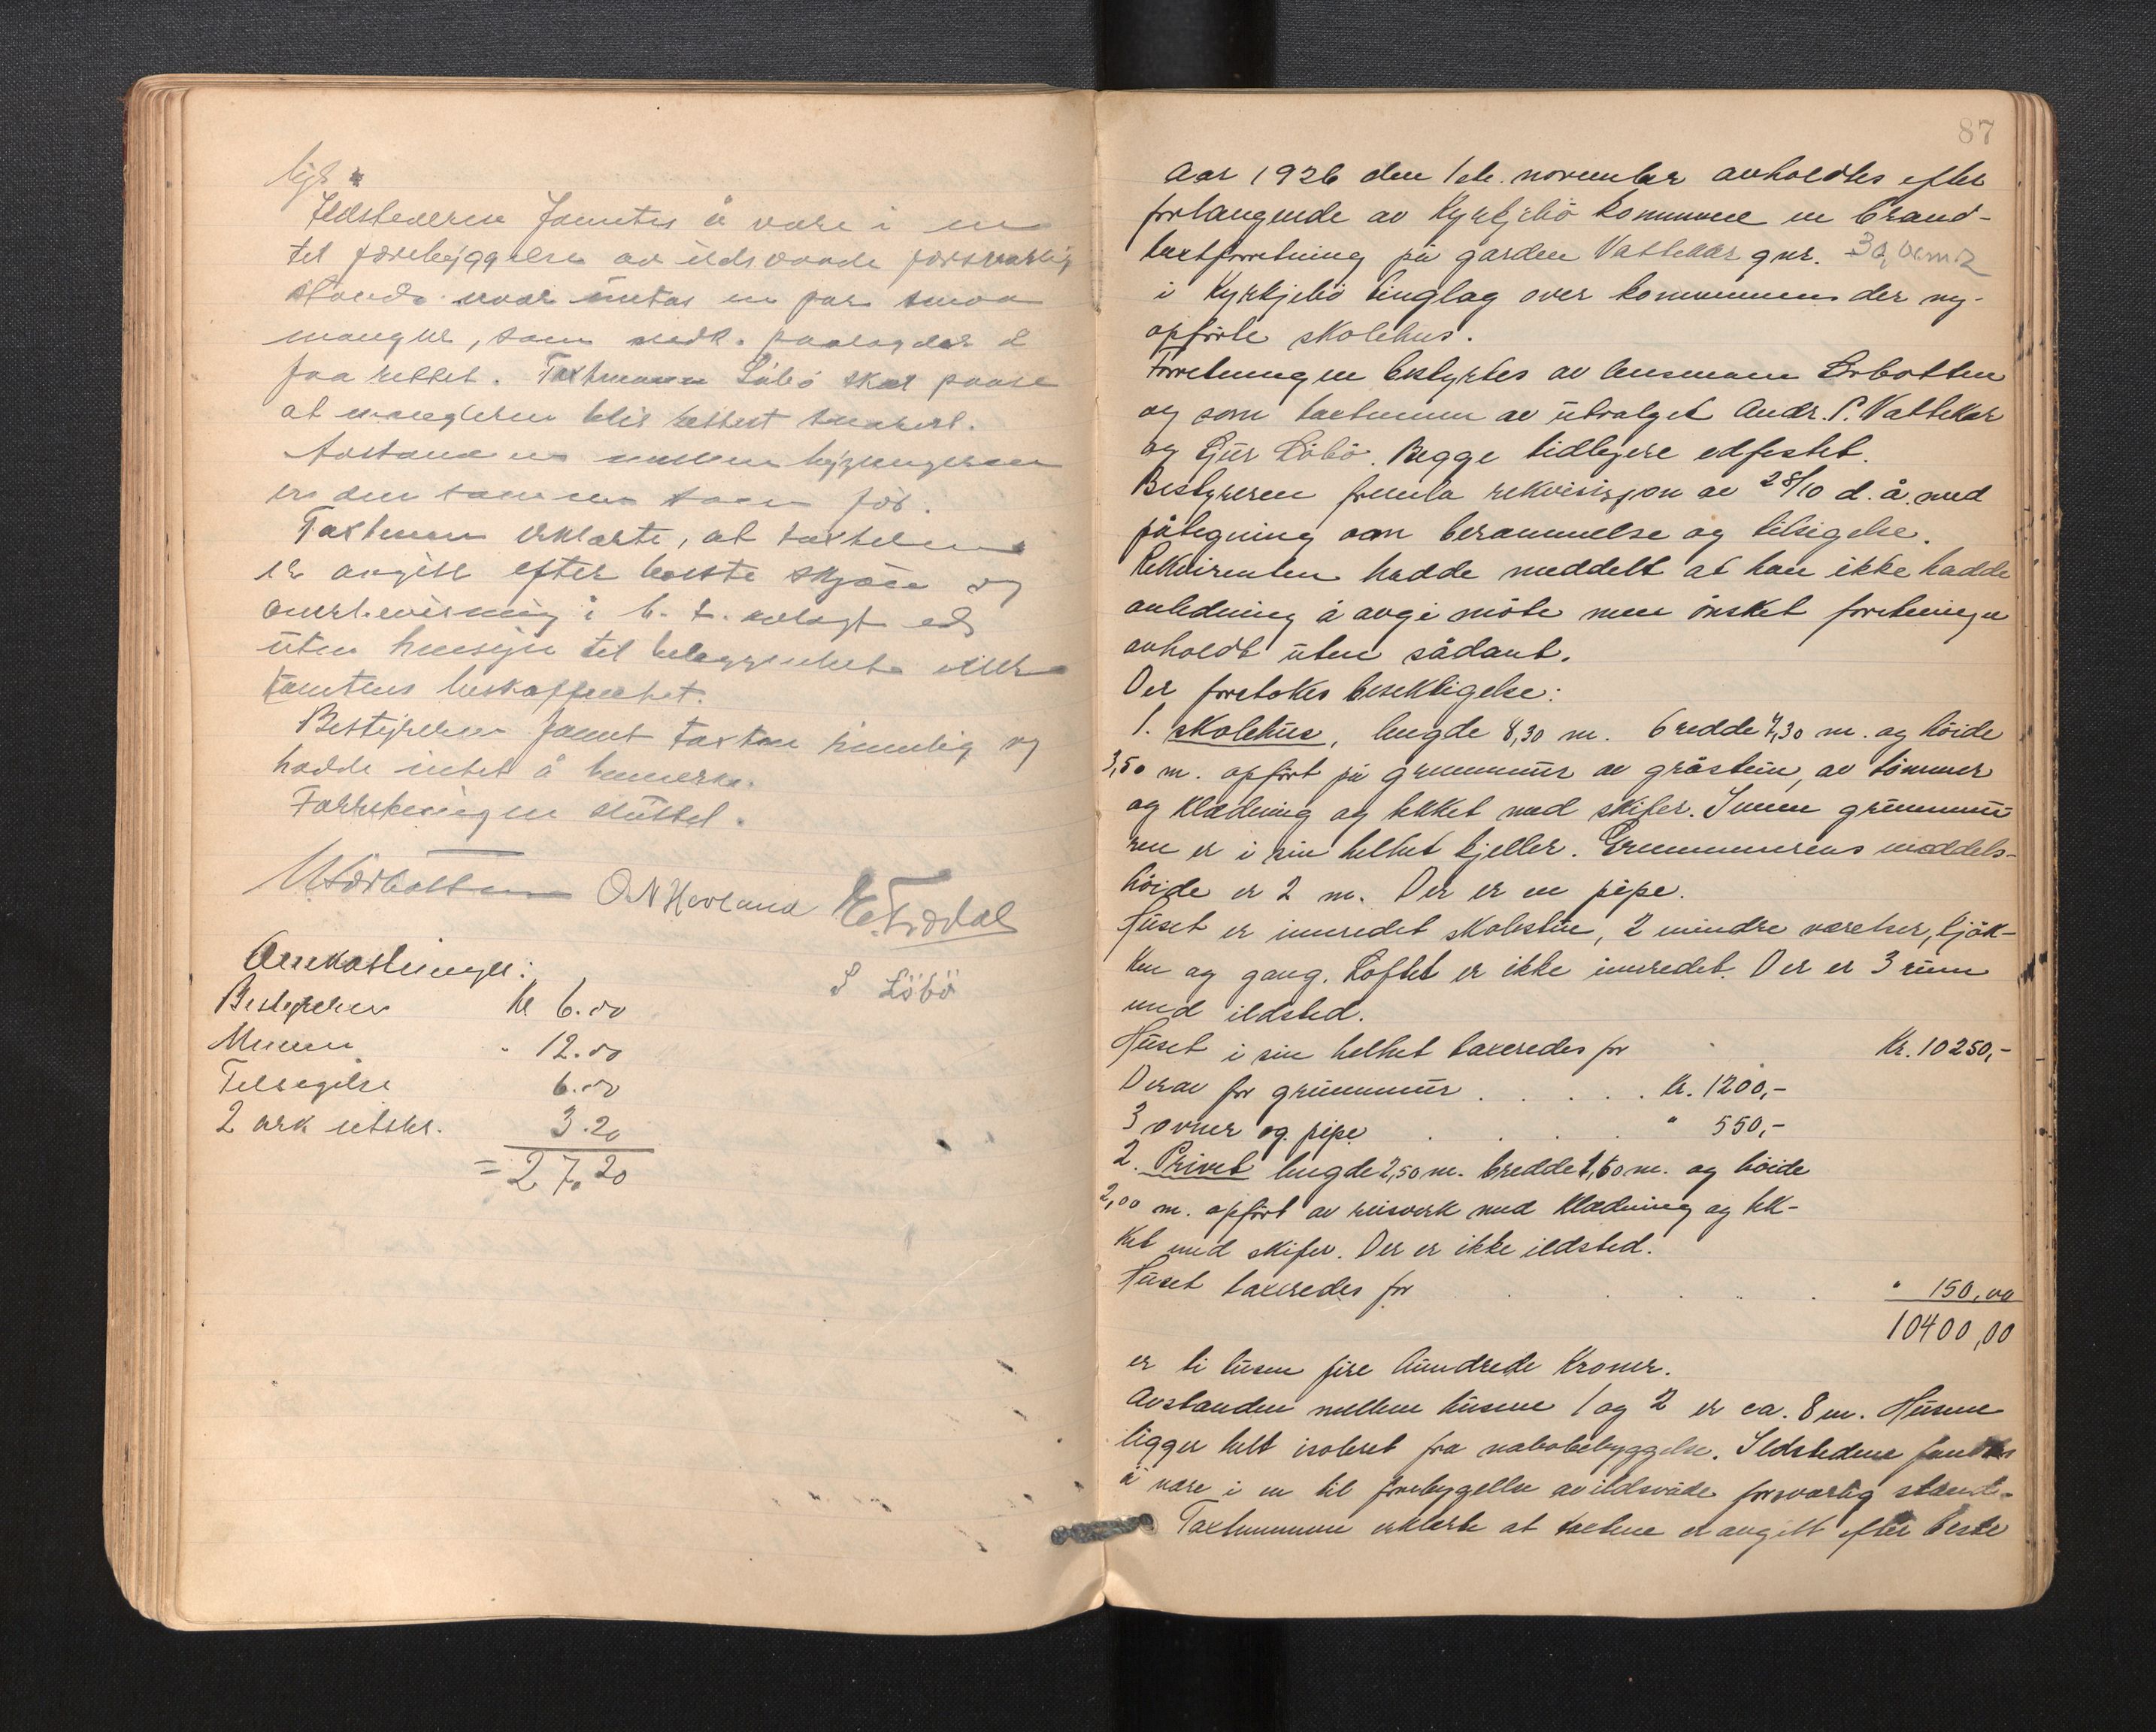 ligt.
Ildstederne fantes å være i en
til forebyggelse av ildsvaade forsvarlig
stand naar untas en par smaa
mangler, som vedk. paalagdes å
faa rettet. Taxtmann Löbö skal paase
at manglerne blir rettet snarest.
Avstanden mellem bygningerne
er den samme som för.
Taxtmenn erklærte, at taxterne
er avgitt efter beste skjön og
overbevisning i h. t. avlagt ed
uten hensyn til beliggenhet eller
tomtens beskaffenhet.
Bestyreren fant taxten rimelig og
hadde intet å bemerke.
Forretningen sluttet.
O N Hovland
S Löbö
Omkostninger:
Bestyreren kr 6.00
Menn " 12.00
Tilsigelse 6.00
2 ark utskr. 3.20
= 27.20
87
Aar 1926 den 1ste november avholdtes efter
forlangende av Kyrkjebö kommune en brand-
taxtforretning på garden Vattekar gnr. 30, brn 2
i Kyrkjebö tinglag over kommunens der ny-
opförte skolehus.
Forretningen bestyrtes av lensmann Lotbotten
og som taxtmenn av utvalget Andr. P. Vattekar
og Sjur Löbö. Begge tidligere edfestet.
Bestyreren fremla rekvisisjon av 28/10 d. å. med
påtegning om berammelse og tilsigelse.
Rekvirenten hadde meddelt at han ikke hadde
anledning å avgi möte men önsket forretningen
avholdt uten sådant.
Der foretokes besektigelse:
1. Skolehus, lengde 8,30 m. bredde 7,30 m. og höide
3,50 m. opfört på grunnmur av gråstein, av tömmer
og klædning og tekket med skifer. Innen grunnmu
ren er i sin helhet kjeller. Grunnmurens meddels-
höide er 2 m. Der er en pipe.
Huset er innredet skolestue, 2 mindre værelser, kjök-
ken og gang. Loftet er ikke innredet. Der er 3 rum
med ildsted.
Huset i sin helhet taxeredes for Kr. 10250,-
Derav for grunnmur . . . . . kr. 1200,-
3 ovner og pipe . . . . " 550,-
2. Privet lengde 2,50 m. bredde 1,60 m. og höide
2,00 m. opfört av reisverk med klædning og tek-
ket med skifer. Der er ikke ildsted.
Huset taxeredes for . . . . " 150,00
10400,00
er ti tusen fire hundrede kroner.
Avstanden mellem husene 1 og 2 er ca. 8 m. Husene
ligger helt isoleret fra nabobebyggelse. Ildstedene fandtes
å være i en til forebyggelse av ildsvåde forsvarlig stand.
Taxtmennene erklærte at taxtene er avgitt efter beste